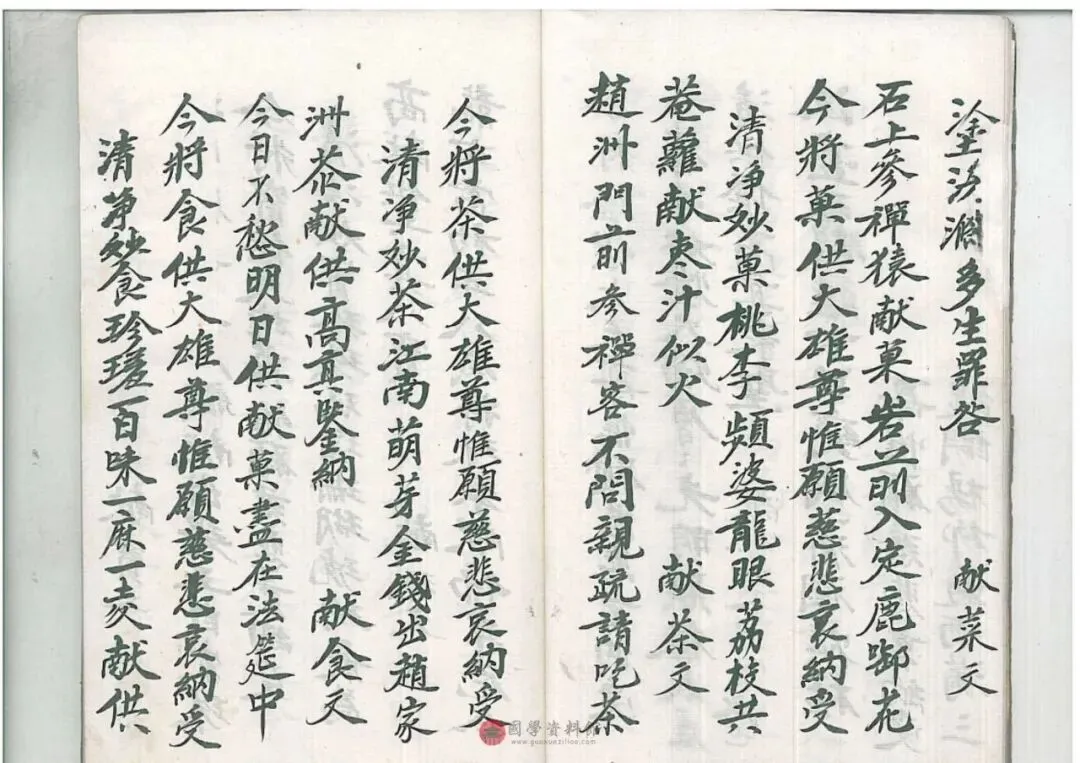 塗汤潤多生罪咎　献菓文
石上參禪猿献菓岩前入定鹿啣花
今將菓供大雄尊惟願慈悲哀納受
清净妙菓桃李蘋婆龍眼荔枝共
菴蘿献枣汁似火　献茶文
趙洲門前参禪客不問親疏請吃茶
今將茶供大雄尊惟願慈悲哀納受
清净妙茶江南萌芽金錢出趙家
洲茶献供高真鑒納　献食文
今日不愁明日供献菓盡在法筵中
今將食供大雄尊惟願慈悲哀納受
清净妙食珍瑗百味一麻一麦献供
國學資料館
www.guoxueziliao.com